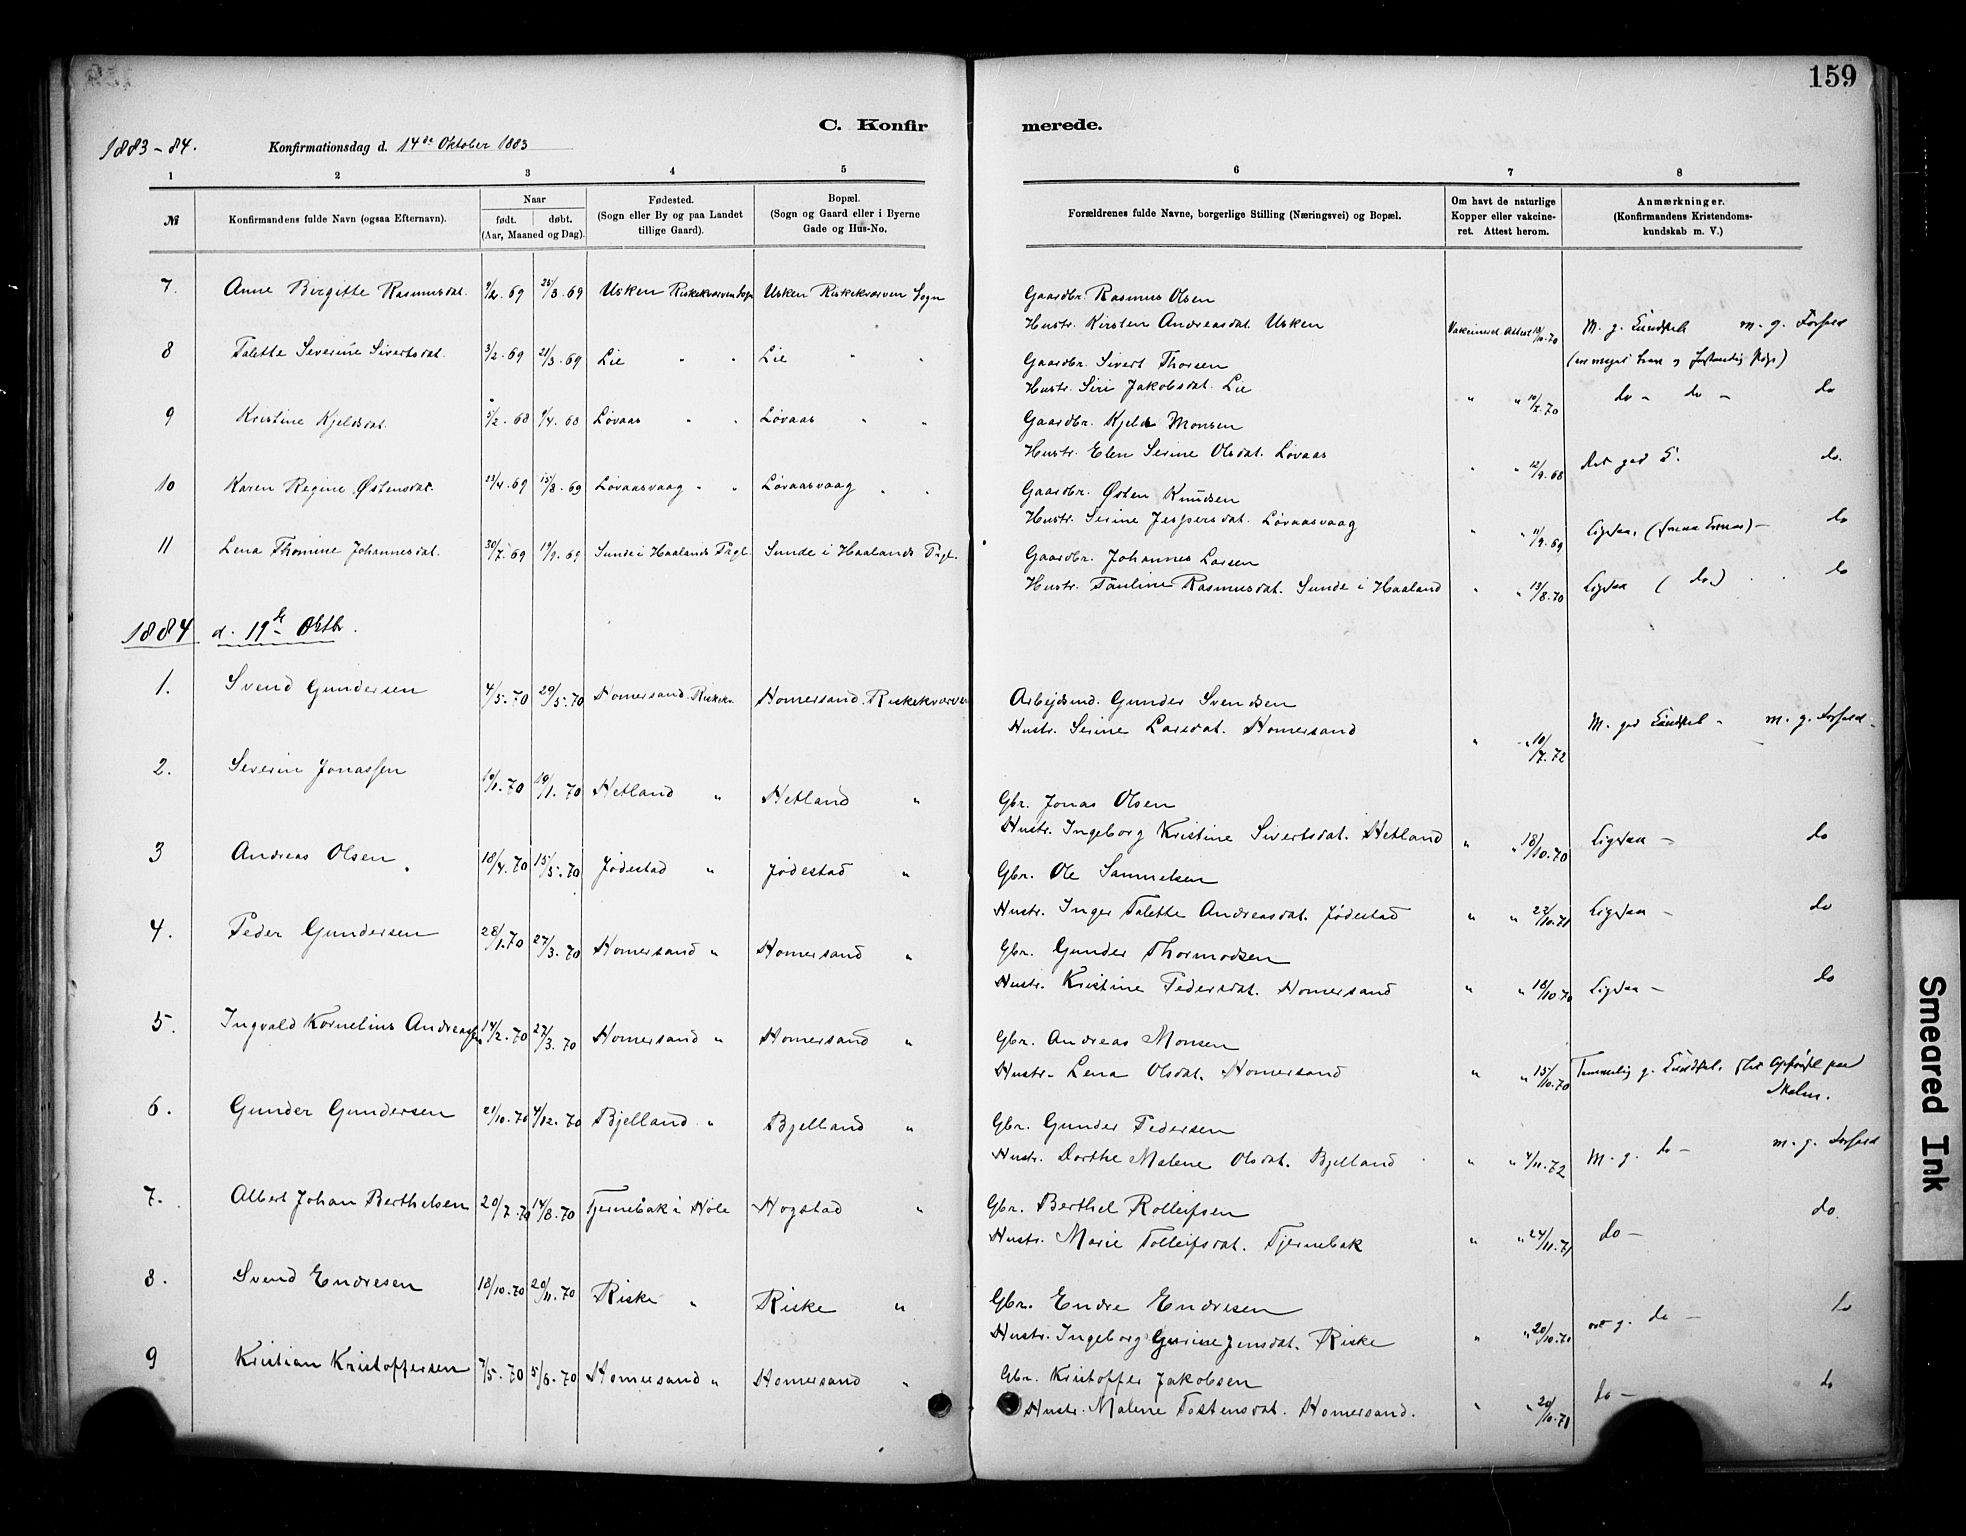 159
C. Konfirmerede.
1883-84. Konfirmationsdag d. 14de Oktober 1883
1 2 3 4 5 6 7 8
№ Konfirmandens fulde Navn (ogsaa Efternavn). Naar født. døbt. (Aar, Maaned og Dag). Fødested. (Sogn eller By og paa Landet tillige Gaard). Bopæl. (Sogn og Gaard eller i Byerne Gade og Hus-No. Forældrenes fulde Navne, borgerlige Stilling (Næringsvei) og Bopæl. Om havt de naturlige Kopper eller vakcineret. Attest herom. Anmærkninger. (Konfirmandens Kristendomskundskab m. V.)
7. Anne Birgitte Rasmusdat. 9/2. 69 25/3. 69 Usken Riskekværven Sogn Usken Riskekværven Sogn Gaardbr. Rasmus Olsen
Hustr. Kirsten Andreasdat. Usken Vakcineret Attest 10/10.70 M. g. Kundskab m. g. Forhold
8 Talette Severine Sivertsdat. 3/2. 69 21/3. 69 Lie " " Lie " " Gaardbr. Sivert Thorsen
Hustr. Siri Jakobsdat. Lie " " 10/7.70 do - do - do
9 Kristine Kjeldsdat. 5/2. 68 9/4. 68 Løvaas " " Løvaas " " Gaardbr. Kjeld Monsen
Hustr. Elen Serine Olsdat. Løvaas " " 12/9.68 do.
10 Karen Regine Østensdat. 23/4.69 15/8.69 Løvaasvaag " " Løvaasvaag " " Gaardbr. Østen Knudsen
Hustr. Serine Jespersdat. Løvaasvaag " " 11/9.69 Ligesaa. do
11 Lena Thomine Johannesdat. 30/7.69 19/9.69 Sunde i Haalands Pgl. Sunde i Haalands Pgl. Gaardbr. Johannes Larsen
Hustr. Pauline Rasmusdat. Sunde i Haaland " " 13/8.70 Ligesaa (do) do
1884 d. 19de Oktbr.
1. Svend Gundersen 4/5.70 29/5.70 Homersand. Riskekv. Homersand. Riskekværven Arbejdsmd. Gunder Svendsen
Hustr. Serine Larsdat. Homersand " " 10/7.72 M. god Kundskab - m. g. Forhold -
2. Severin Jonassen 10/1.70 19/1.70 Hetland " Hetland " Gbr. Jonas Olsen
Hustr. Ingeborg Kristine Sivertsdat. Hetland " " 18/10.70 Ligesaa - do
3 Andreas Olsen 18/4.70 15/5.70 Jødestad " Jødestad " Gbr. Ole Samuelsen
Hustr. Inger Talette Andreasdat. Jødestad " " 22/10.71 Ligesaa - do
4. Peder Gundersen 28/1.70 27/3.70 Homersand " Homersand " Gbr. Gunder Thormodsen
Hustr. Kristine Pedersdat. Homersand " " 18/10.70 Ligesaa - do
5. Ingvald Kornelius Andreassen 14/2.70 27/3.70 Homersand " Homersand " Gbr. Andreas Monsen
Hustr. Lena Olsdat. Homersand " " 15/10.70 Temmelig g. Kundskab. Opførsel paa
Skolen.
6. Gunder Gundersen 21/10.70 4/12.70 Bjelland " Bjelland " Gbr. Gunder Pedersen
Hustr. Dorthe Malene Olsdat. Bjelland " " 4/11.72 M. g. do - m. g. Forhold
7. Albert Johan Berthelsen 20/7.70 14/8.70 Tjernebak i Høle Hogstad " Gbr. Berthel Rolleifsen
Hustr. Marie Tolleifsdat. Tjernebak " " 24/11.71 do - do.
8. Svend Endresen 18/10.70 20/11.70 Riske " Riske " Gbr. Endre Endresen
Hustr. Ingeborg Gurine Jensdat. Riske " " 20/10.71 g. do - do
9 Kristian Kristoffersen 7/5.70 5/6.70 Homersand " Homersand " Gbr. Kristoffer Jakobsen
Hustr. Malene Tostensdat. Homersand. " " 20/10.71 do - do
Smeared Ink